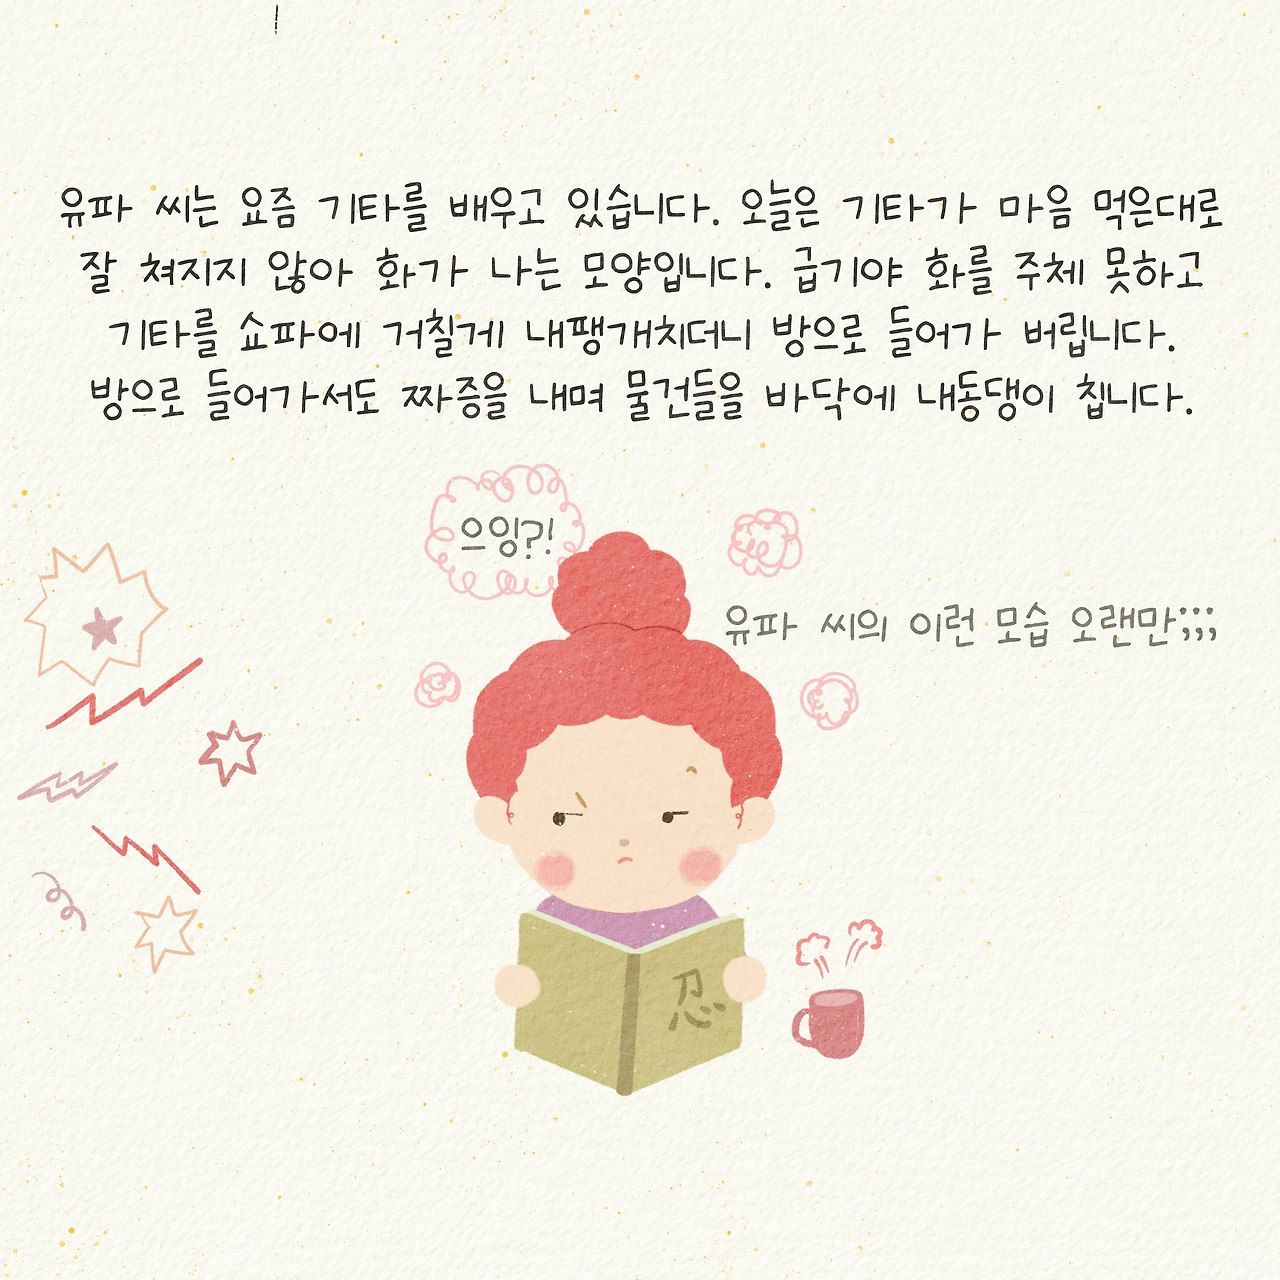 유파 씨는 요즘 기타를 배우고 있습니다. 오늘은 기타가 마음 먹은대로
잘 쳐지지 않아 화가 나는 모양입니다. 급기야 화를 주체 못하고
기타를 쇼파에 거칠게 내팽개치더니 방으로 들어가 버립니다.
방으로 들어가서도 짜증을 내며 물건들을 바닥에 내동댕이 칩니다.
으잉?!
유파 씨의 이런 모습 오랜만;;;
忍